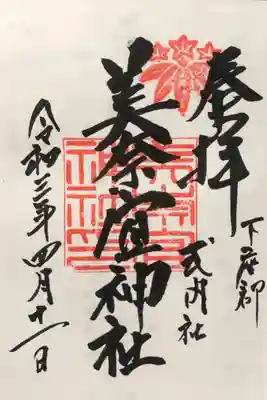 奉拝
下座郡
式内社
美奈宜神社
令和三年四月十一日